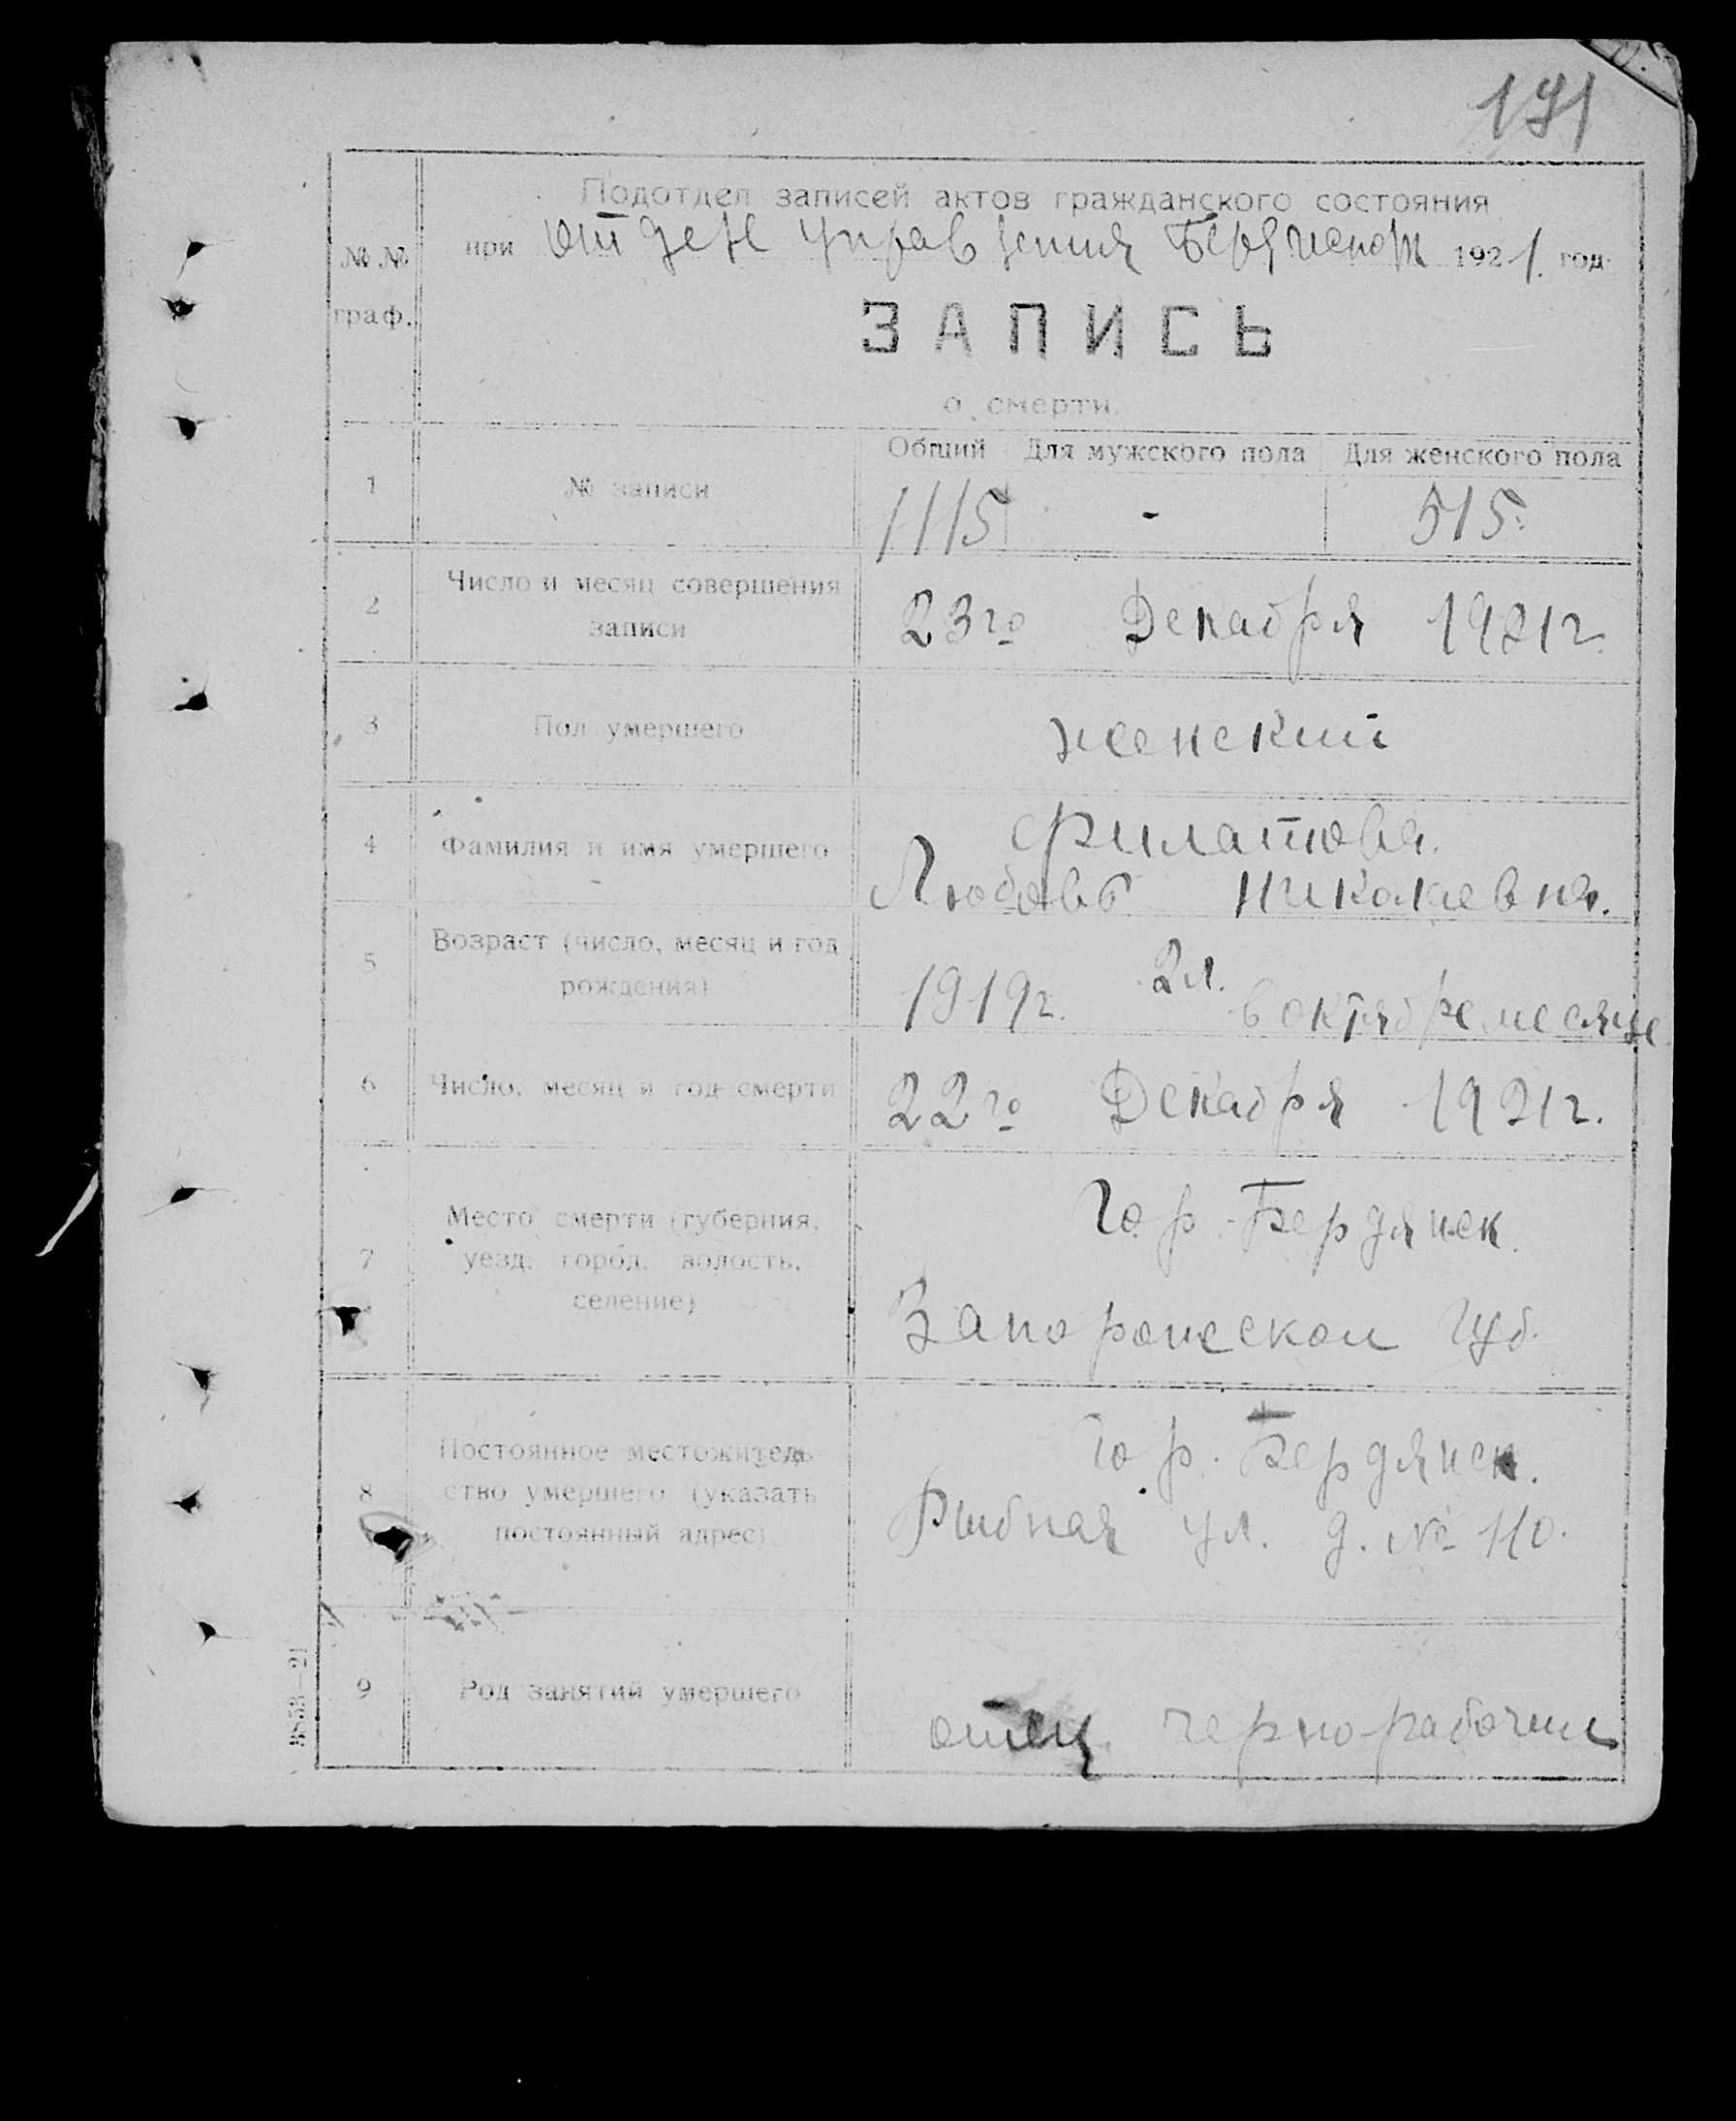 191
Подотдел записей актов гражданского состояния
при отделе управления Бердянском 1921. год.
№ №
граф.
ЗАПИСЬ
о смерти.
Общий Для мужского пола Для женского пола
1 № записи 1115 - 515.
2 Число и месяц совершения
записи
23го Декабря 1921г.
3 Пол умершего женский
4 Фамилия и имя умершего
Филатова.
Любовь Николаевна.
5 Возраст (число, месяц и год
рождения)
2л.
1919г. в октябре месяце
6 Число, месяц и год смерти 22го Декабря 1921г.
7 Место смерти (губерния,
уезд, город, волость,
селение)
Гор. Бердянск.
Запорожской Губ.
8 Постоянное местожитель-
ство умершего (указать
постоянный адрес)
Гор. Бердянск.
Рыбная ул. д. № 110.
9 Род занятий умершего
отец чернорабочий
3853—21